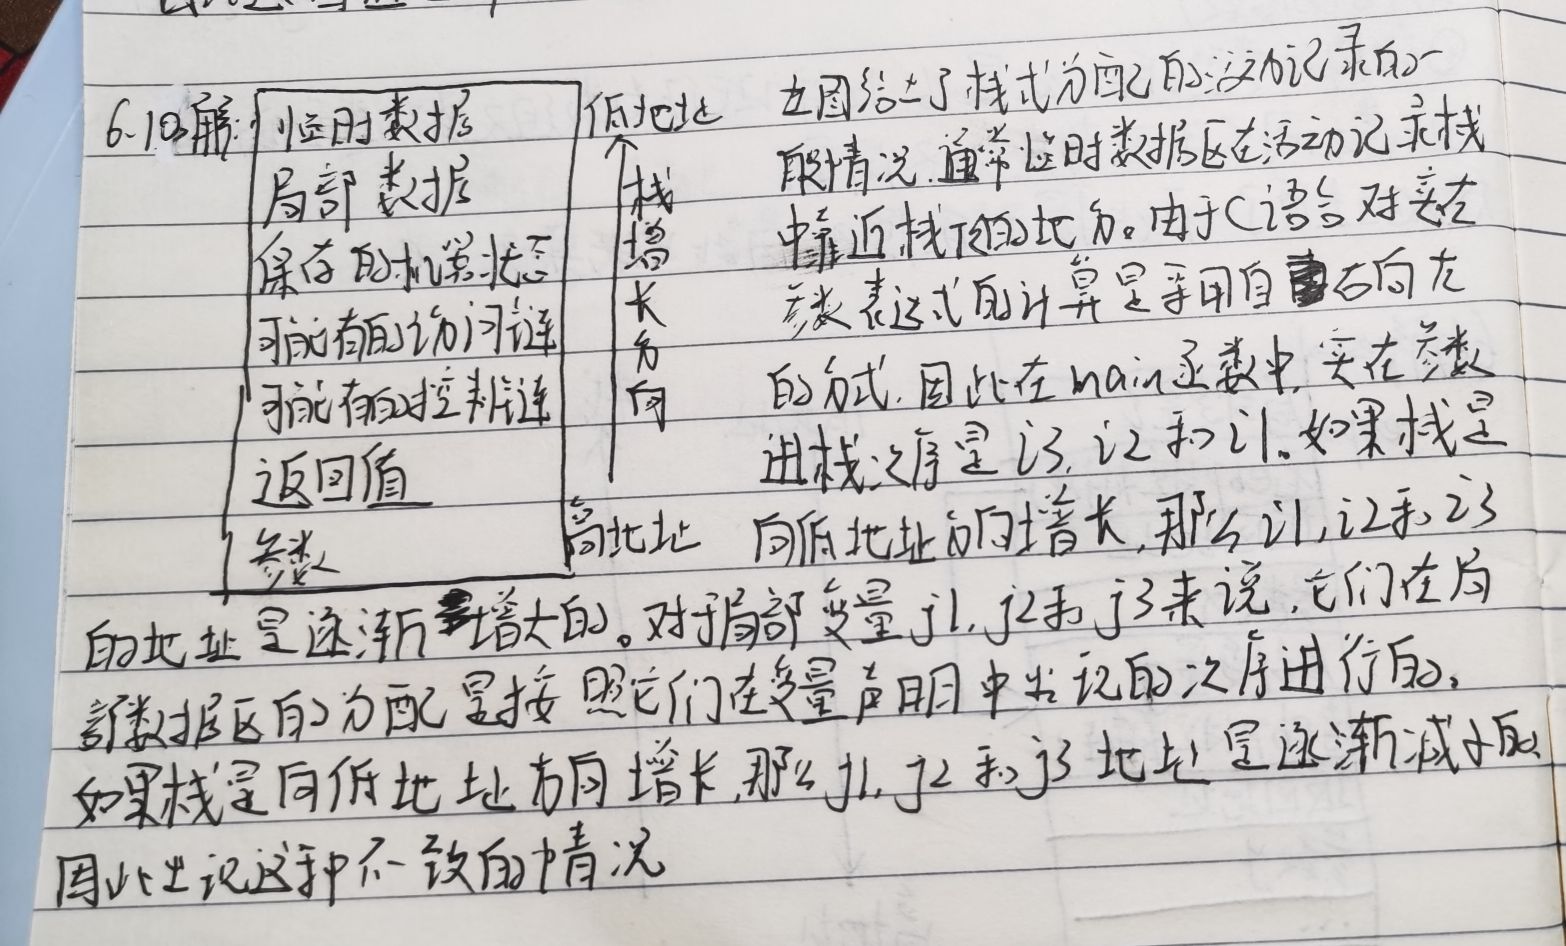 6.10 解:
临时数据
局部数据
保存的机器状态
可能有的访问链
可能有的控制链
返回值
参数
低地址
栈增长方向
高地址
左图给出了栈式分配的活动记录的一
般情况.通常临时数据区在活动记录栈
中靠近栈顶的地方。由于C语言对实在
参数表达式的计算是采用自右向左
的方式.因此在main函数中,实在参数
进栈次序是i3,i2和i1。如果栈是
向低地址方向增长,那么i1,i2和i3
的地址是逐渐增大的。对于局部变量j1,j2和j3来说,它们在局
部数据区的分配是按照它们在变量声明中出现的次序进行的。
如果栈是向低地址方向增长,那么j1,j2和j3地址是逐渐减小的,
因此出现这种不一致的情况